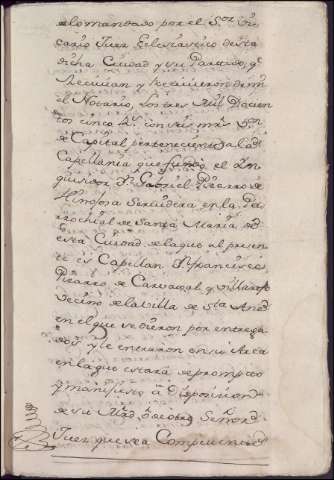 a lo mandado por el S.or Vi-
cario Juez Eclesiastico de esta
dicha Ciudad y su Partido, q.e
recivian y recivieron de mi
el Notario, los tres mil Docien
tos cinco R.s con mrs v.on
de Capital perteneciente a la d.ha
Capellania que fundo el In-
quisidor D.n Gabriel Pizarro de
Hinojosa servidera en la Pa-
rrochial de Santa Maria de
esta Ciudad de la que al presen-
te es Capellan D.n Francisco
Pizarro de Carvajal y
Vecino de la Villa de S.ta Ana
en el que se dieron por entrega-
dos y le entraron en su Arca
en la que estara de prompto
y manifiesto a disposicion
de su Mrd. o de otro Señor
Juez que sea Competente